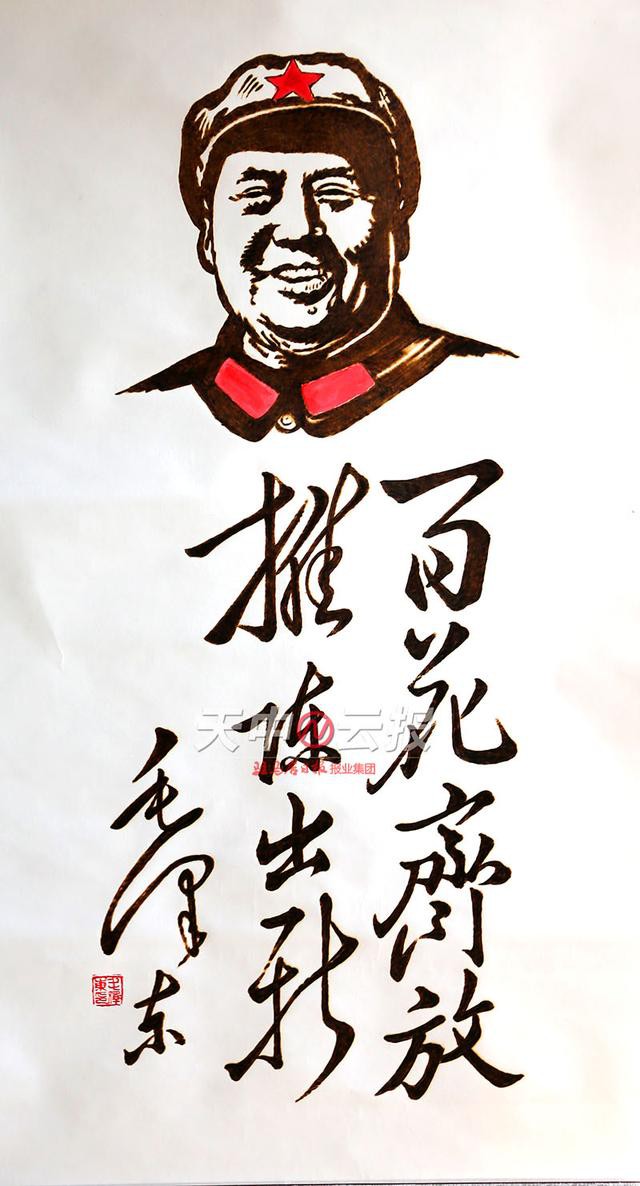 百花齊放
推陈出新
毛泽东
天中云报
驻马店日报报业集团